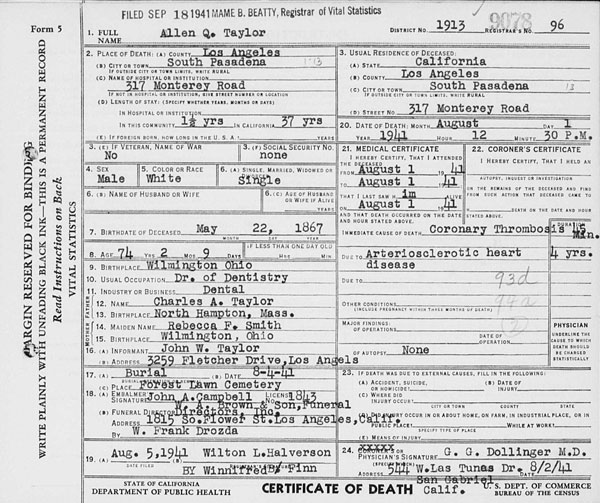 FILED SEP 18 1941 MAME B. BEATTY, Registrar of Vital Statistics
Form 5
DISTRICT NO. 1913 9078 REGISTRAR'S NO. 96
MARGIN RESERVED FOR BINDING
WRITE PLAINLY WITH UNFADING BLACK INK—THIS IS A PERMANENT RECORD
Read Instructions on Back
VITAL STATISTICS
1. FULL NAME Allen Q. Taylor
2. PLACE OF DEATH: (A) COUNTY Los Angeles
(B) CITY OR TOWN South Pasadena
IF OUTSIDE CITY OR TOWN LIMITS, WRITE RURAL
(C) NAME OF HOSPITAL OR INSTITUTION:
317 Monterey Road
IF NOT IN HOSPITAL OR INSTITUTION, GIVE STREET NUMBER OR LOCATION
(D) LENGTH OF STAY: (SPECIFY WHETHER YEARS, MONTHS OR DAYS)
IN HOSPITAL OR INSTITUTION
IN THIS COMMUNITY 1½ yrs IN CALIFORNIA 37 yrs
(E) IF FOREIGN BORN, HOW LONG IN THE U. S. A.? YEARS
3. USUAL RESIDENCE OF DECEASED:
(A) STATE California
(B) COUNTY Los Angeles
(C) CITY OR TOWN South Pasadena
IF OUTSIDE CITY OR TOWN LIMITS, WRITE RURAL
(D) STREET NO. 317 Monterey Road
3. (E) IF VETERAN, NAME OF WAR
No
3. (F) SOCIAL SECURITY NO.
none
4. SEX Male
5. COLOR OR RACE White
6. (A) SINGLE, MARRIED, WIDOWED OR
Single
6. (B) NAME OF HUSBAND OR WIFE
6. (C) AGE OF HUSBAND OR WIFE IF ALIVE
YEARS
7. BIRTHDATE OF DECEASED May 22, 1867
MONTH DAY YEAR
8. AGE 74 YRS 2 MOS 9 DAYS
IF LESS THAN ONE DAY OLD
HRS MIN
9. BIRTHPLACE Wilmington Ohio
10. USUAL OCCUPATION Dr. of Dentistry
11. INDUSTRY OR BUSINESS Dental
FATHER
12. NAME Charles A. Taylor
13. BIRTHPLACE North Hampton, Mass.
MOTHER
14. MAIDEN NAME Rebecca F. Smith
15. BIRTHPLACE Wilmington, Ohio
16. (A) INFORMANT John W. Taylor
(B) ADDRESS 3259 Fletcher Drive, Los Angels
17. (A) Burial (B) DATE 8-4-41
(C) PLACE Forest Lawn Cemetery
18. (A) EMBALMER'S SIGNATURE John A. Campbell LICENSE NO. 1843
W. A. Brown & Son, Funeral
(B) FUNERAL DIRECTOR Directors, Inc.
ADDRESS 1815 So. Flower St. Los Angeles, Calif.
BY W. Frank Drozda
19. Aug. 5, 1941 Wilton L. Halverson
BY Winnifred Finn
20. DATE OF DEATH: MONTH August DAY 1
YEAR 1941 HOUR 12 MINUTE 30 P.M.
21. MEDICAL CERTIFICATE
I HEREBY CERTIFY, THAT I ATTENDED THE DECEASED
FROM August 1 1941
TO August 1 1941
THAT I LAST SAW H im ALIVE
ON August 1 1941
AND THAT DEATH OCCURRED ON THE DATE AND HOUR STATED ABOVE.
22. CORONER'S CERTIFICATE
I HEREBY CERTIFY, THAT I HELD AN
AUTOPSY, INQUEST OR INVESTIGATION
ON THE REMAINS OF THE DECEASED AND FIND FROM SUCH ACTION THAT DECEASED CAME TO
DEATH ON THE DATE AND HOUR STATED ABOVE.
IMMEDIATE CAUSE OF DEATH Coronary Thrombosis Min.
DUE TO Arteriosclerotic heart disease 4 yrs.
DUE TO 93d
94a
OTHER CONDITIONS
(INCLUDE PREGNANCY WITHIN THREE MONTHS OF DEATH)
MAJOR FINDINGS:
OF OPERATIONS
DATE OF OPERATION
OF AUTOPSY None
PHYSICIAN
UNDERLINE THE CAUSE TO WHICH DEATH SHOULD BE CHARGED STATISTICALLY
23. IF DEATH WAS DUE TO EXTERNAL CAUSES, FILL IN THE FOLLOWING:
(A) ACCIDENT, SUICIDE, OR HOMICIDE?
(B) DATE OF INJURY
(C) WHERE DID INJURY OCCUR?
CITY OR TOWN COUNTY STATE
(D) DID INJURY OCCUR IN OR ABOUT HOME, ON FARM, IN INDUSTRIAL PLACE, OR IN
PUBLIC PLACE? WHILE AT WORK?
SPECIFY TYPE OF PLACE
(E) MEANS OF INJURY
24. CORONER'S OR
PHYSICIAN'S SIGNATURE G. G. Dollinger M.D.
ADDRESS 544 W. Las Tunas Dr. DATE 8/2/41
San Gabriel
Calif.
STATE OF CALIFORNIA
DEPARTMENT OF PUBLIC HEALTH
CERTIFICATE OF DEATH
U. S. DEPT. OF COMMERCE
BUREAU OF THE CENSUS